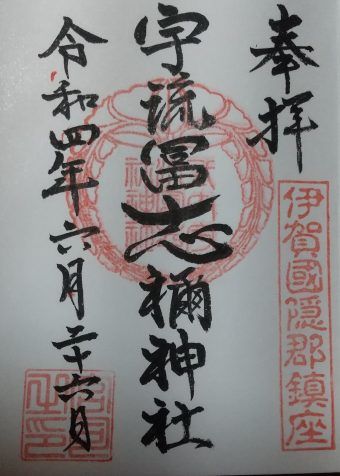 奉拝
伊賀國隠郡鎮座
宇流冨志禰神社
令和四年六月二十六日